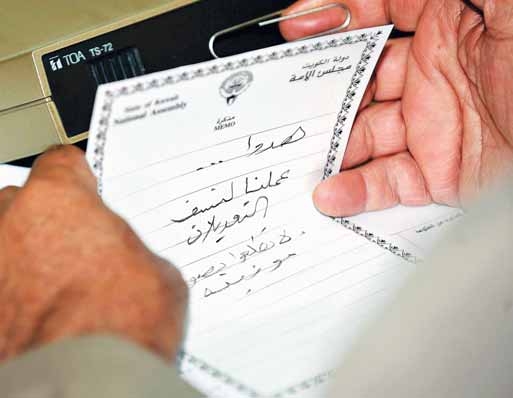 TOA TS-72
دولة الكويت
مجلس الأمة
State of Kuwait
National Assembly
مذكرة
MEMO
اهدوا ...
عملنا كشف
التعديلات
لا تقلقوا